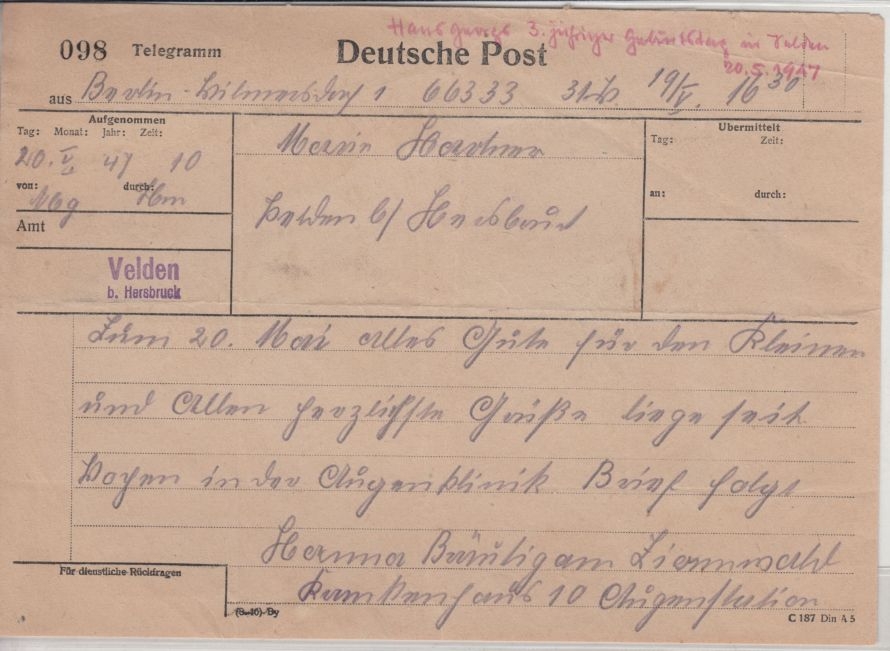 Hansgeorgs 3. jähriger Geburtstag in Velden
20.5.1947
098 Telegramm Deutsche Post
aus Berlin-Wilmersdorf 1 66333 31 W. 19/V. 16 30
Aufgenommen
Tag: Monat: Jahr: Zeit:
20. V. 47 10
von: durch:
Nbg
Amt
Velden
b. Hersbruck
Marie Hartner
Velden b/ Hersbruck
Übermittelt
Tag: Zeit:
an: durch:
Zum 20. Mai alles Gute für den Kleinen
und Allen herzlichste Grüße liege seit
Wochen in der Augenklinik Brief folgt
Hanna Bräutigam
Krankenhaus 10 Augenstation
Für dienstliche Rückfragen
C 187 Din A 5